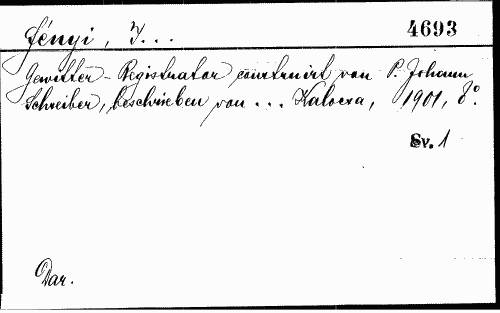 Fényi, J...
4693
Gewitter-Registrator construirt von P. Johann
Schreiber, beschrieben von ... Kalocsa, 1901, 8°.
Sv. 1
Dar.